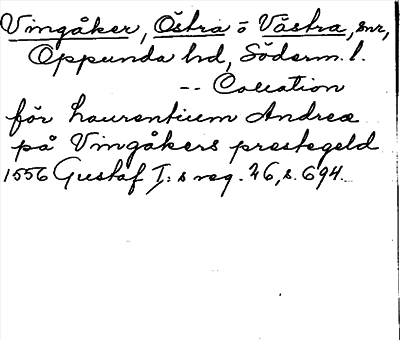 Vingåker, Östra o Västra, snr,
Oppunda hd, Söderm. l.
-- Collation
för Laurentium Andreæ
på Vingåkers prestegeld
1556 Gustaf I: s reg. 26, s. 694.